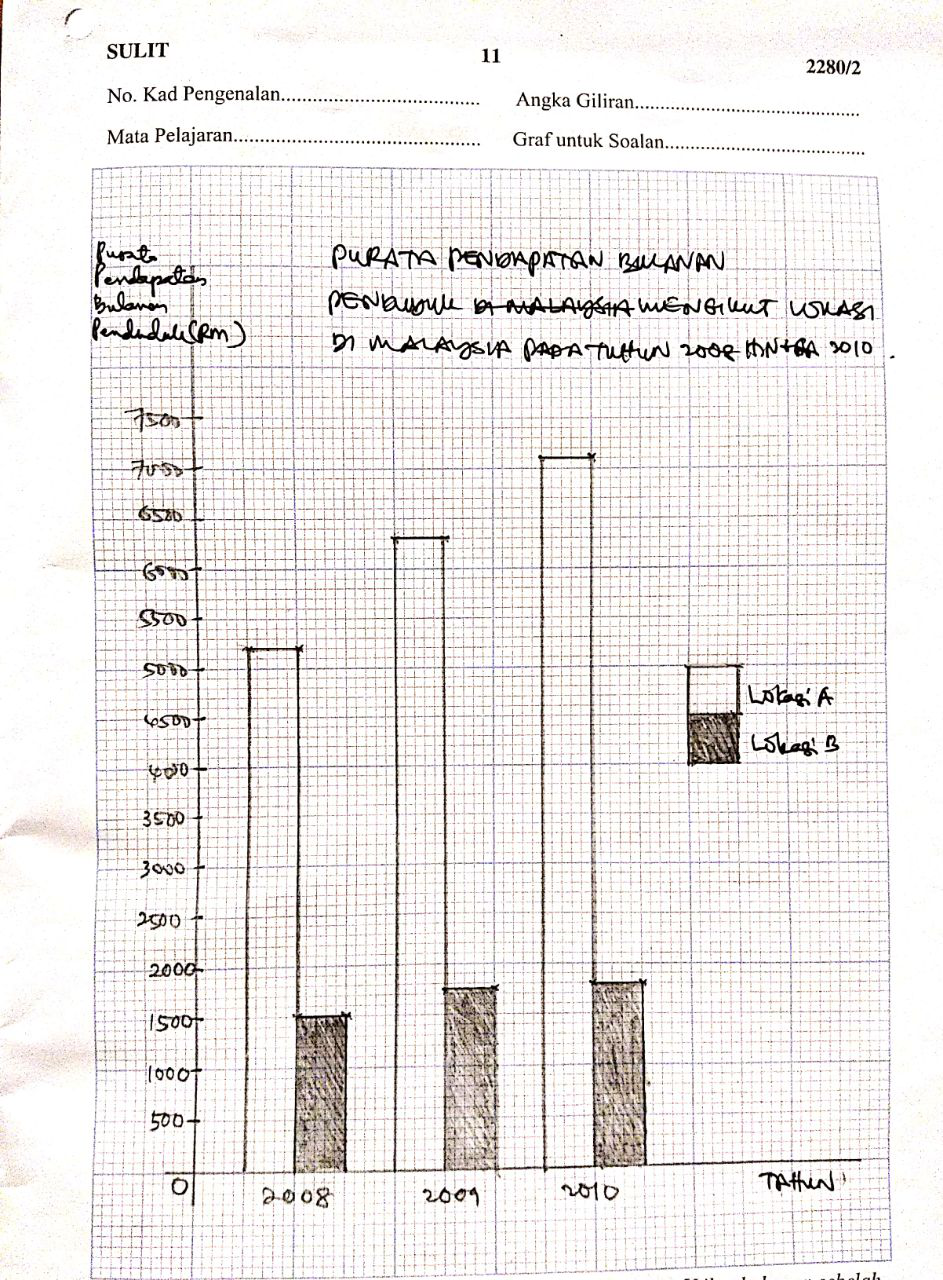 SULIT
11
2280/2
No. Kad Pengenalan
Angka Giliran
Mata Pelajaran
Graf untuk Soalan
Purata
Pendapatan
Bulanan
Penduduk (RM)
PURATA PENDAPATAN BULANAN
PENDUDUK DI MALAYSIA MENGIKUT LOKASI
DI MALAYSIA PADA TAHUN 2008 HINGGA 2010.
7500
7000
6500
6000
5500
5000
4500
4000
3500
3000
2500
2000
1500
1000
500
0
Lokasi A
Lokasi B
2008
2009
2010
TAHUN
sebelah